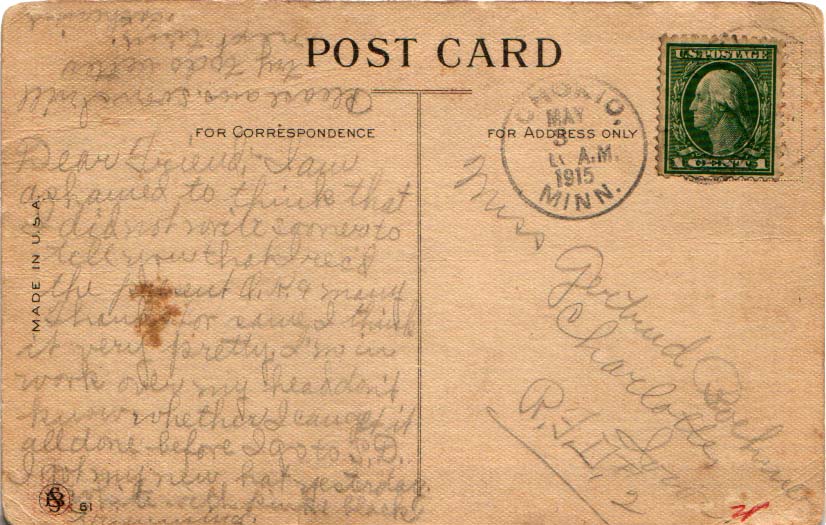 POST CARD
FOR CORRESPONDENCE
FOR ADDRESS ONLY
U.S. POSTAGE
1 CENT 1
CHOKIO,
MAY
A.M.
1915
MINN.
MADE IN U.S.A.
Dear Friend, I am
ashamed to think that
I did not write sooner to
tell you that I rec'd
the present O.K. & many
thanks for same, I think
it very pretty. I'm in
work over my head don't
know whether I can get it
all done before I go to S.D.
I got my new hat yesterday
with pink & black
trimming.
Please ans. soon & will
try to do better
next time.
Miss Gertrud
Charlotte
Iowa
R.F.D. 2
61